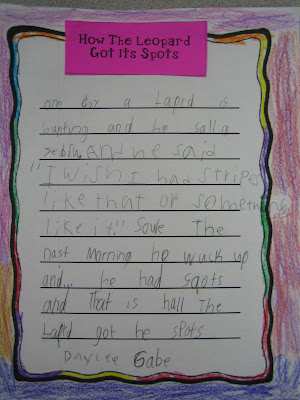 How The Leopard
Got Its Spots
one day a Laprd is
hunting and he sall a
zebru, and he said
"I wish I had stripes
like that or something
like it." Sowe The
nast Morning he wuck up
and... he had Spots
and That is hall The
Laprd got he spots
Baylee Gabe